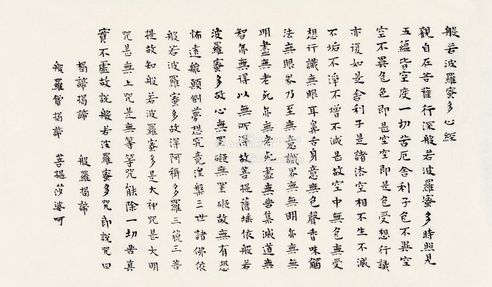 般若波羅蜜多心經
觀自在菩薩行深般若波羅蜜多時照見
五蘊皆空度一切苦厄舍利子色不異空
空不異色色即是空空即是色受想行識
亦復如是舍利子是諸法空相不生不滅
不垢不淨不增不減是故空中無色無受
想行識無眼耳鼻舌身意無色聲香味觸
法無眼界乃至無意識界無無明亦無無
明盡無老死亦無老死盡無苦集滅道無
智亦無得以無所得故菩提薩埵依般若
波羅蜜多故心無罣礙無罣礙故無有恐
怖遠離顛倒夢想究竟涅槃三世諸佛依
般若波羅蜜多故得阿耨多羅三藐三菩
提故知般若波羅蜜多是大神咒是大明
咒是無上咒是無等等咒能除一切苦真
實不虛故說般若波羅蜜多咒即說咒曰
揭諦揭諦 般羅揭諦
般羅僧揭諦 菩提莎婆呵